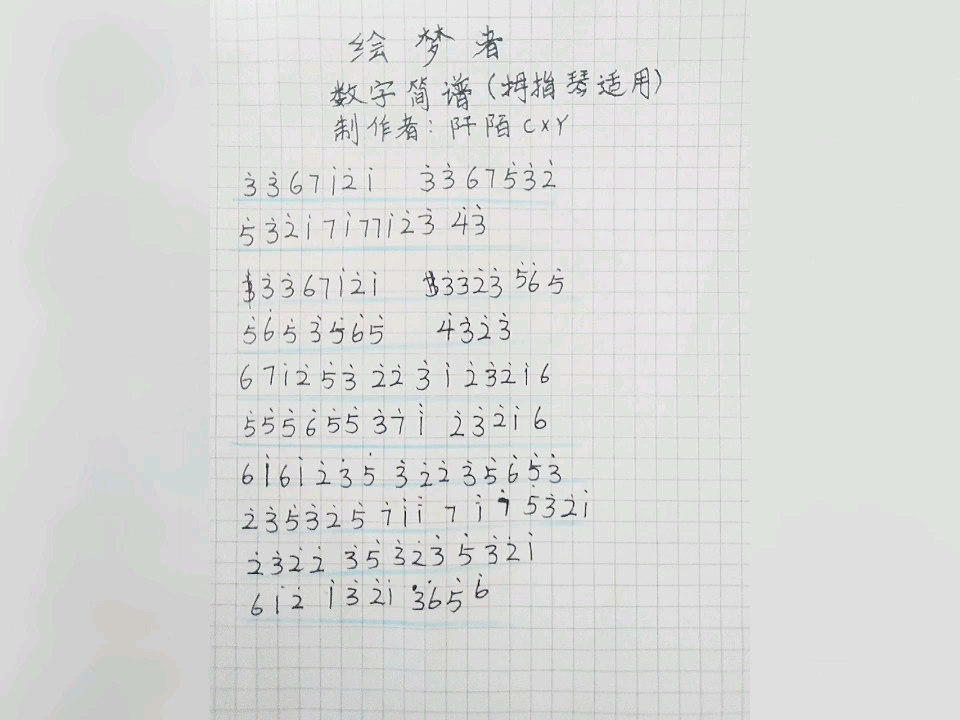 绘梦者
数字简谱(拇指琴适用)
制作者:阡陌CXY
3̇ 3̇ 6 7 1̇ 2̇ 1̇  3̇ 3̇ 6 7 5̇ 3̇ 2̇
5̇ 3̇ 2̇ 1̇ 7 1̇ 7 7 1̇ 2̇ 3̇  4̇ 3̇
3̇ 3̇ 6 7 1̇ 2̇ 1̇  3̇ 3̇ 2̇ 3̇ 5̇ 6̇ 5̇
5̇ 6̇ 5̇ 3̇ 5̇ 6̇ 5̇  4̇ 3̇ 2̇ 3̇
6 7 1̇ 2̇ 5̇ 3̇ 2̇ 2̇ 3̇ 1̇ 2̇ 3̇ 2̇ 1̇ 6
5̇ 5̇ 5̇ 6̇ 5̇ 5̇ 3̇ 7̇ 1̇  2̇ 3̇ 2̇ 1̇ 6
6 1̇ 6 1̇ 2̇ 3̇ 5̇  3̇ 2̇ 2̇ 3̇ 5̇ 6̇ 5̇ 3̇
2̇ 3̇ 5̇ 3̇ 2̇ 5̇ 7̇ 1̇ 1̇ 7 1̇ 7 5̇ 3̇ 2̇ 1̇
2̇ 3̇ 2̇ 2̇  3̇ 5̇ 3̇ 2̇ 3̇ 5̇ 3̇ 2̇ 1̇
6 1̇ 2̇  1̇ 3̇ 2̇ 1̇  3̇ 6̇ 5̇ 6̇